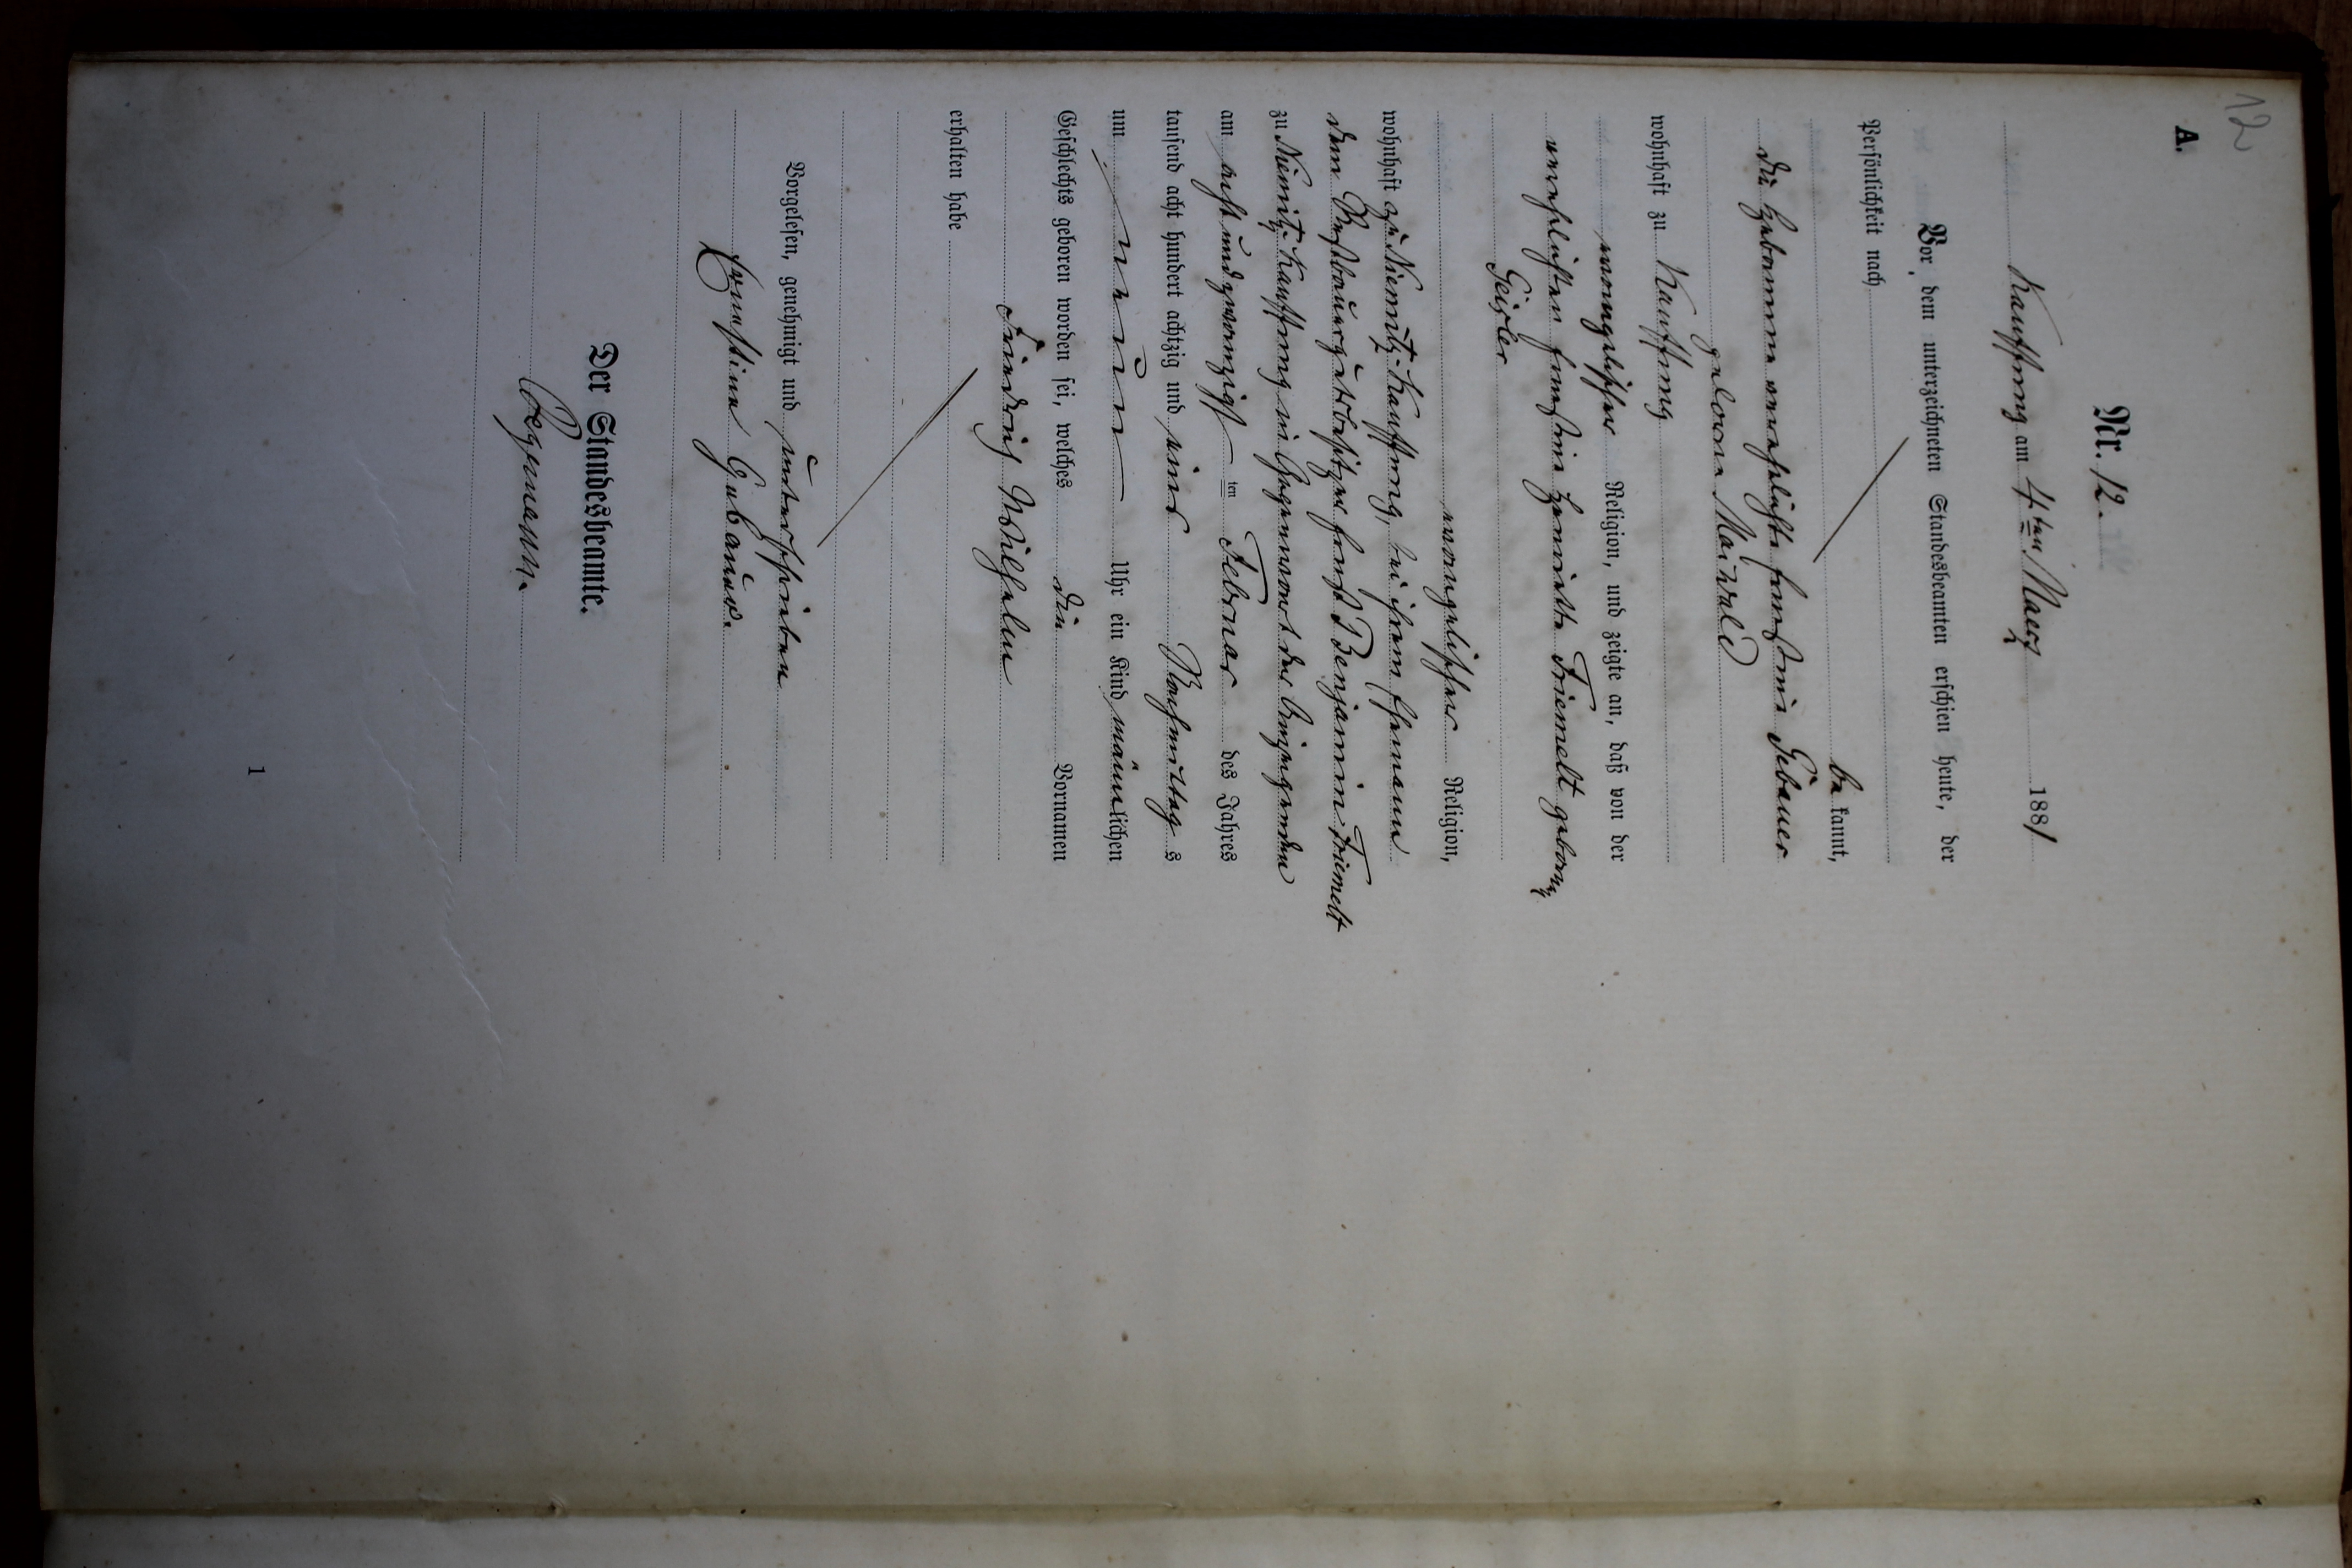 12
A.
Nr. 12.
Kauffung am 4ten Maerz 1881
Vor dem unterzeichneten Standesbeamten erschien heute, der
Persönlichkeit nach
be kannt,
die Hebamme verehelichte Ernestine Gebauer
geborne Maiwald
wohnhaft zu Kauffung
evangelischer Religion, und zeigte an, daß von der
verehelichten Ernestine Henriette Friemelt geborne
Geisler
evangelischer Religion,
wohnhaft zu Niemitz-Kauffung, bei ihrem Ehemann
dem Restbauergutsbesitzer Ernst Benjamin Friemelt
zu Niemitz-Kauffung in Gegenwart der Anzeigenden
am acht und zwanzigst ten Februar des Jahres
tausend acht hundert achtzig und eins Nachmittag s
um neun Uhr ein Kind männlichen
Geschlechts geboren worden sei, welches die Vornamen
Friedrich Wilhelm
erhalten habe
Vorgelesen, genehmigt und unterschrieben
Ernestine Gebauer.
Der Standesbeamte.
1